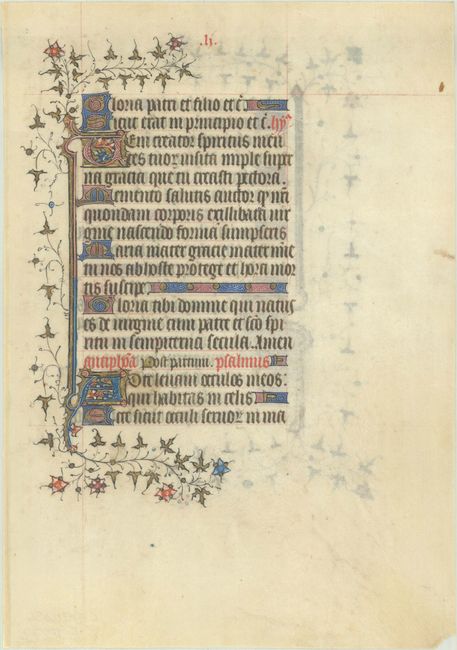 .h.
Gloria patri et filio et c̄.
Sicut erat in principio et c̄. hy̅s
Veni creator spiritus men
tes tuoꝝ visita imple super
na gracia que tu creasti pectora.
Memento salutis auctor qᷓ nr̄i
quondam corporis ex illibata vir
gine nascendo formā sumpseris
Maria mater gracie mater mīe
tu nos ab hoste protege et hora mor
tis suscipe
Gloria tibi domine qui natus
es de virgine cum patre et sc̄o spi
ritu in sempiterna secula. Amen
antiph̄a Post partum. psalmus
Ad te levavi oculos meos:
qui habitas in celis
Ecce sicut oculi servoꝝ in ma